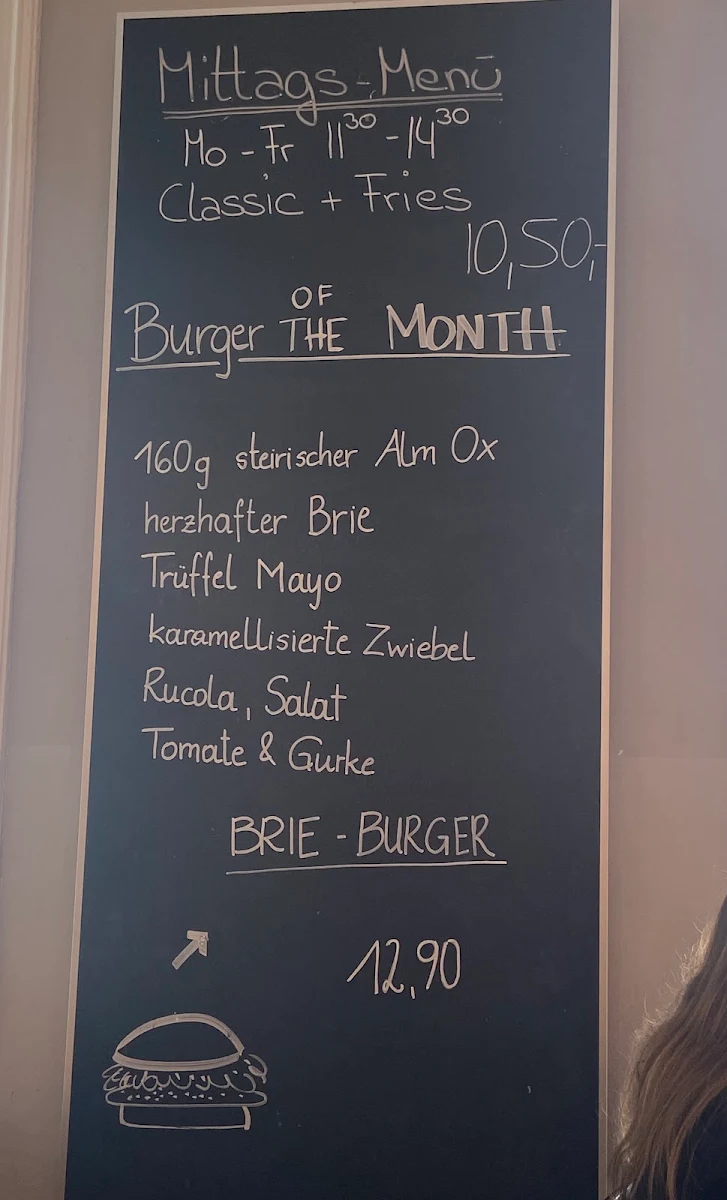 Mittags-Menü
Mo - Fr 11³⁰ - 14³⁰
Classic + Fries
10,50,-
Burger OF THE MONTH
160g steirischer Alm Ox
herzhafter Brie
Trüffel Mayo
karamellisierte Zwiebel
Rucola, Salat
Tomate & Gurke
BRIE - BURGER
12,90